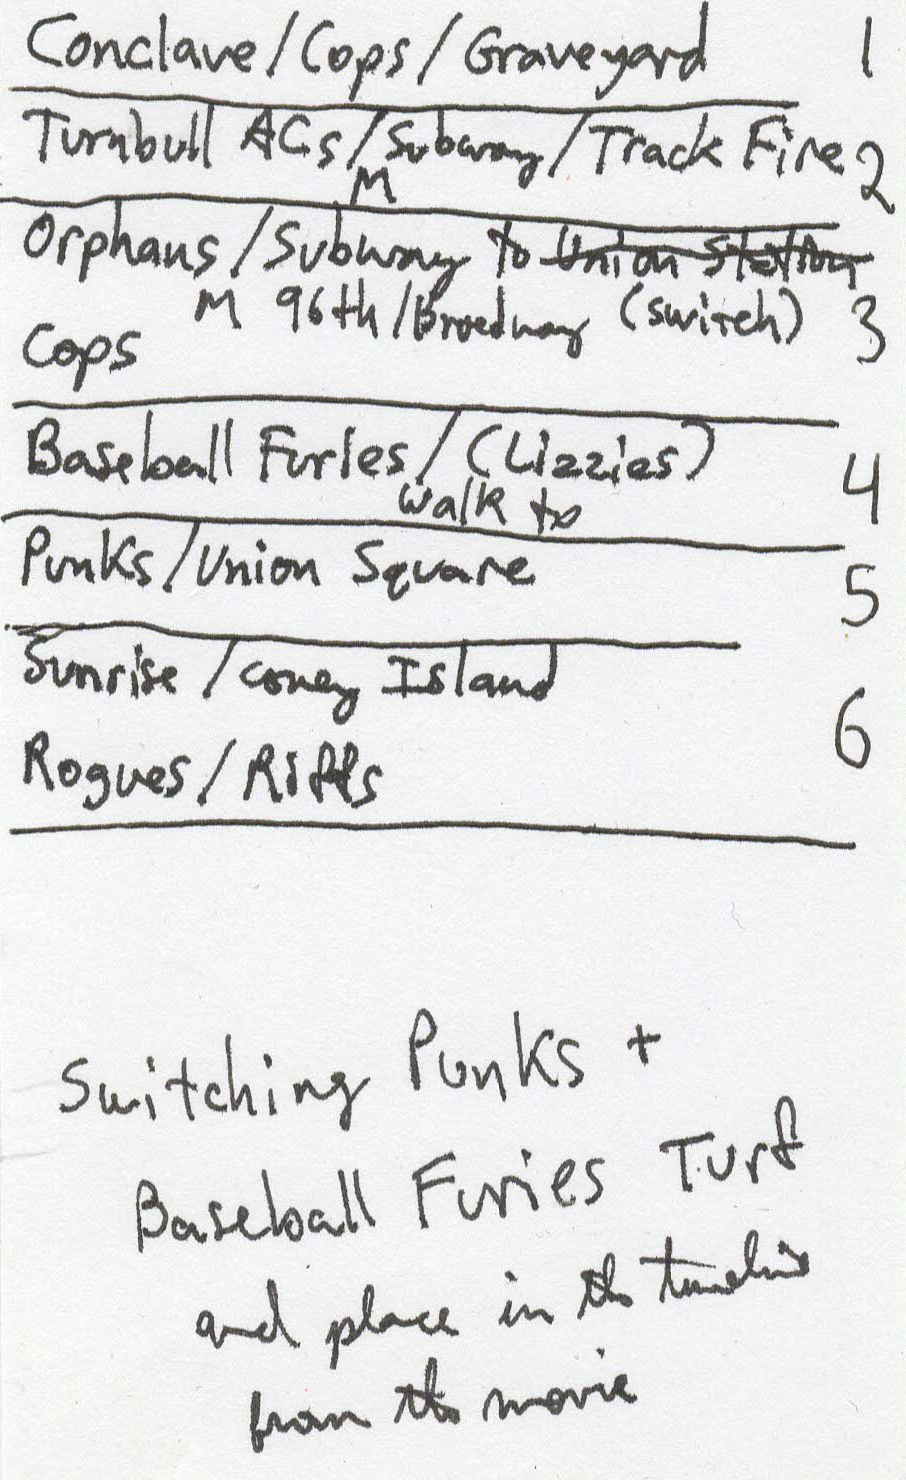 Conclave/Cops/Graveyard 1
Turnbull ACs/Subway/Track Fire 2
M
Orphans/Subway to Union Station
M 96th/Broadway (switch) 3
Cops
Baseball Furies/(Lizzies) 4
walk to
Punks/Union Square 5
Sunrise/coney Island
6
Rogues/Riffs
Switching Punks +
Baseball Furies Turf
and place in the timeline
from the movie